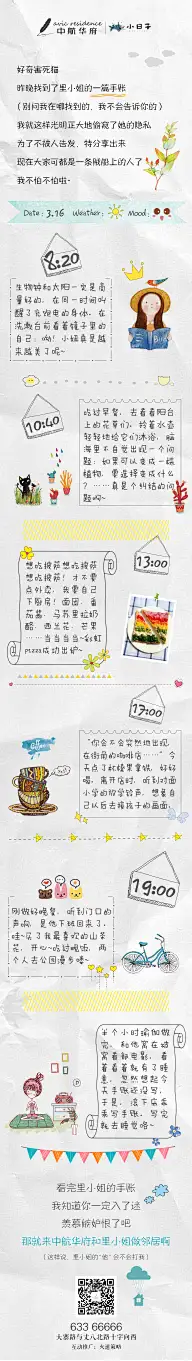 avic residence
中航华府 小日子
好奇害死猫
昨晚找到了里小姐的一篇手账
（别问我在哪找到的，我不会告诉你的）
我就这样光明正大地偷窥了她的隐私
为了不被人告发，特分享出来
现在大家可都是一条贼船上的人了
我不怕不怕啦~
Date: 3.16 Weather: Mood:
8:20
生物钟和太阳一定是商
量好的，在同一时间叫
醒了充满电的身体，在
洗漱台前看着镜子里的
自己：呦！小妞真是越
来越美了呢~
10:40
吃过早餐，去看看阳台
上的花骨们，拎着水壶
轻轻地给它们沐浴，脑
海里不自觉出现一个问
题：如果可以变成一棵
植物，要选择变成什么
？……真是个纠结的问
题啊~
13:00
想吃披萨想吃披萨
想吃披萨！才不要
点外卖，我要自己
下厨房！面团、番
茄酱、马苏里拉奶
酪、西兰花、芒果
……当当当当~彩虹
pizza成功出炉~
17:00
“你会不会突然地出现，
在街角的咖啡店……”今
天点了杯榛果拿铁，好好
喝，离开店时，听到对面小
学的放学铃声，想着自
己以后去接孩子的画面。
19:00
刚做好晚餐，听到门口的
声响，是他下班回来了，
哇~买了我最喜欢的山茶
花，开心~吃过晚饭，两
个人去公园漫步喽~
半个小时瑜伽做
完，和他窝在沙
窝看部电影，看
着看着就有了睡
意，忽然想起今
天手账还没写，
于是，放下家
来写手账，写完
就去睡觉咯~
看完里小姐的手账
我知道你一定入了迷
羡慕嫉妒恨了吧
那就来中航华府和里小姐做邻居啊
（这样说，里小姐的“他”会不会打我）
633 66666
大寨路与丈八北路十字向西
互动推广：火道策略